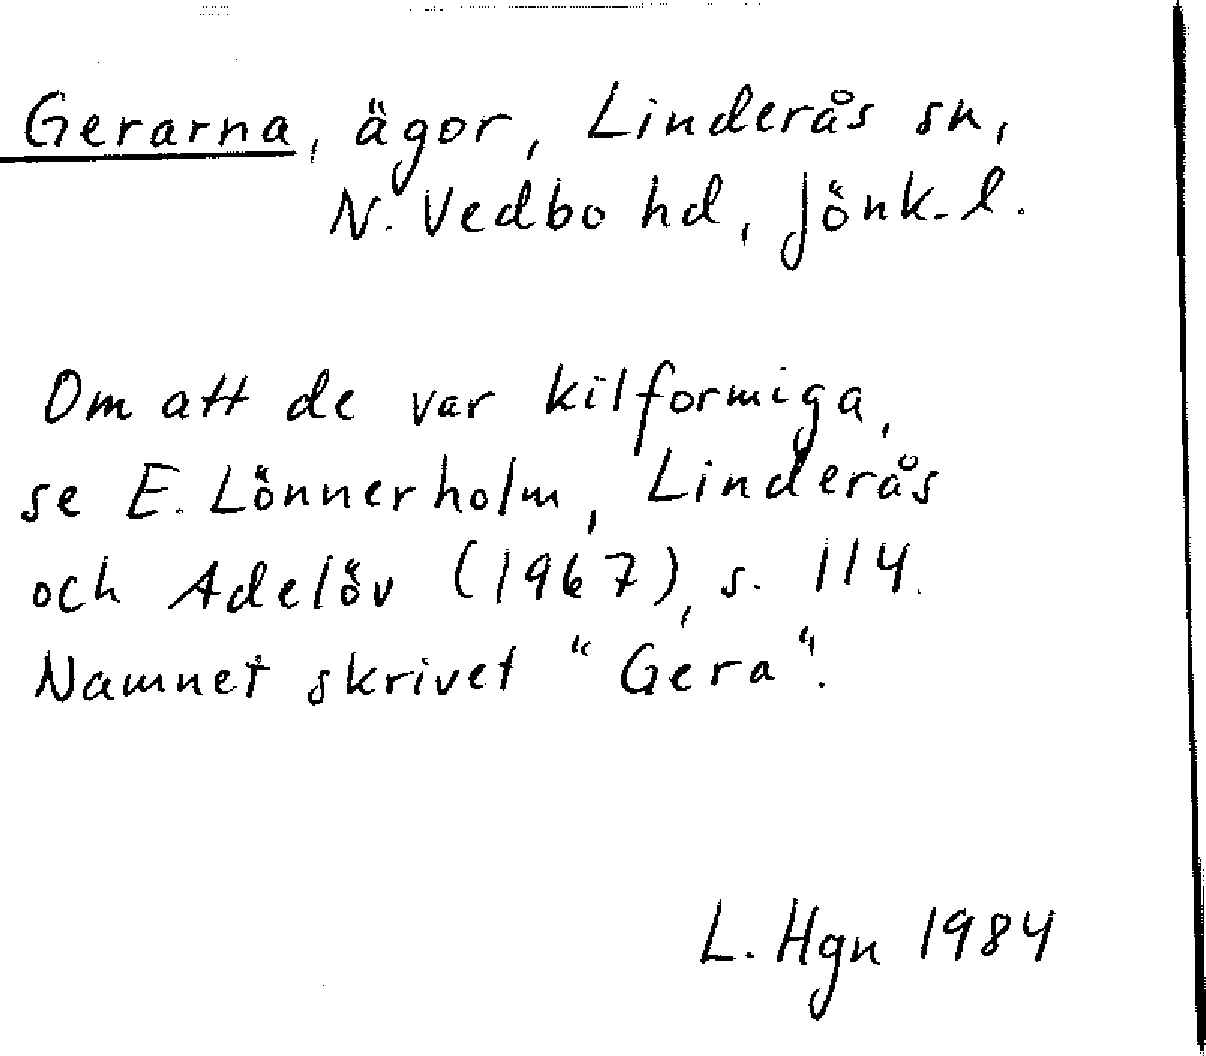 Gerarna, ägor, Linderås sn,
N. Vedbo hd, Jönk. l.
Om att de var kilformiga,
se E. Lönnerholm, Linderås
och Adelöv (1967), s. 114.
Namnet skrivet "Gera".
L. Hgn 1984